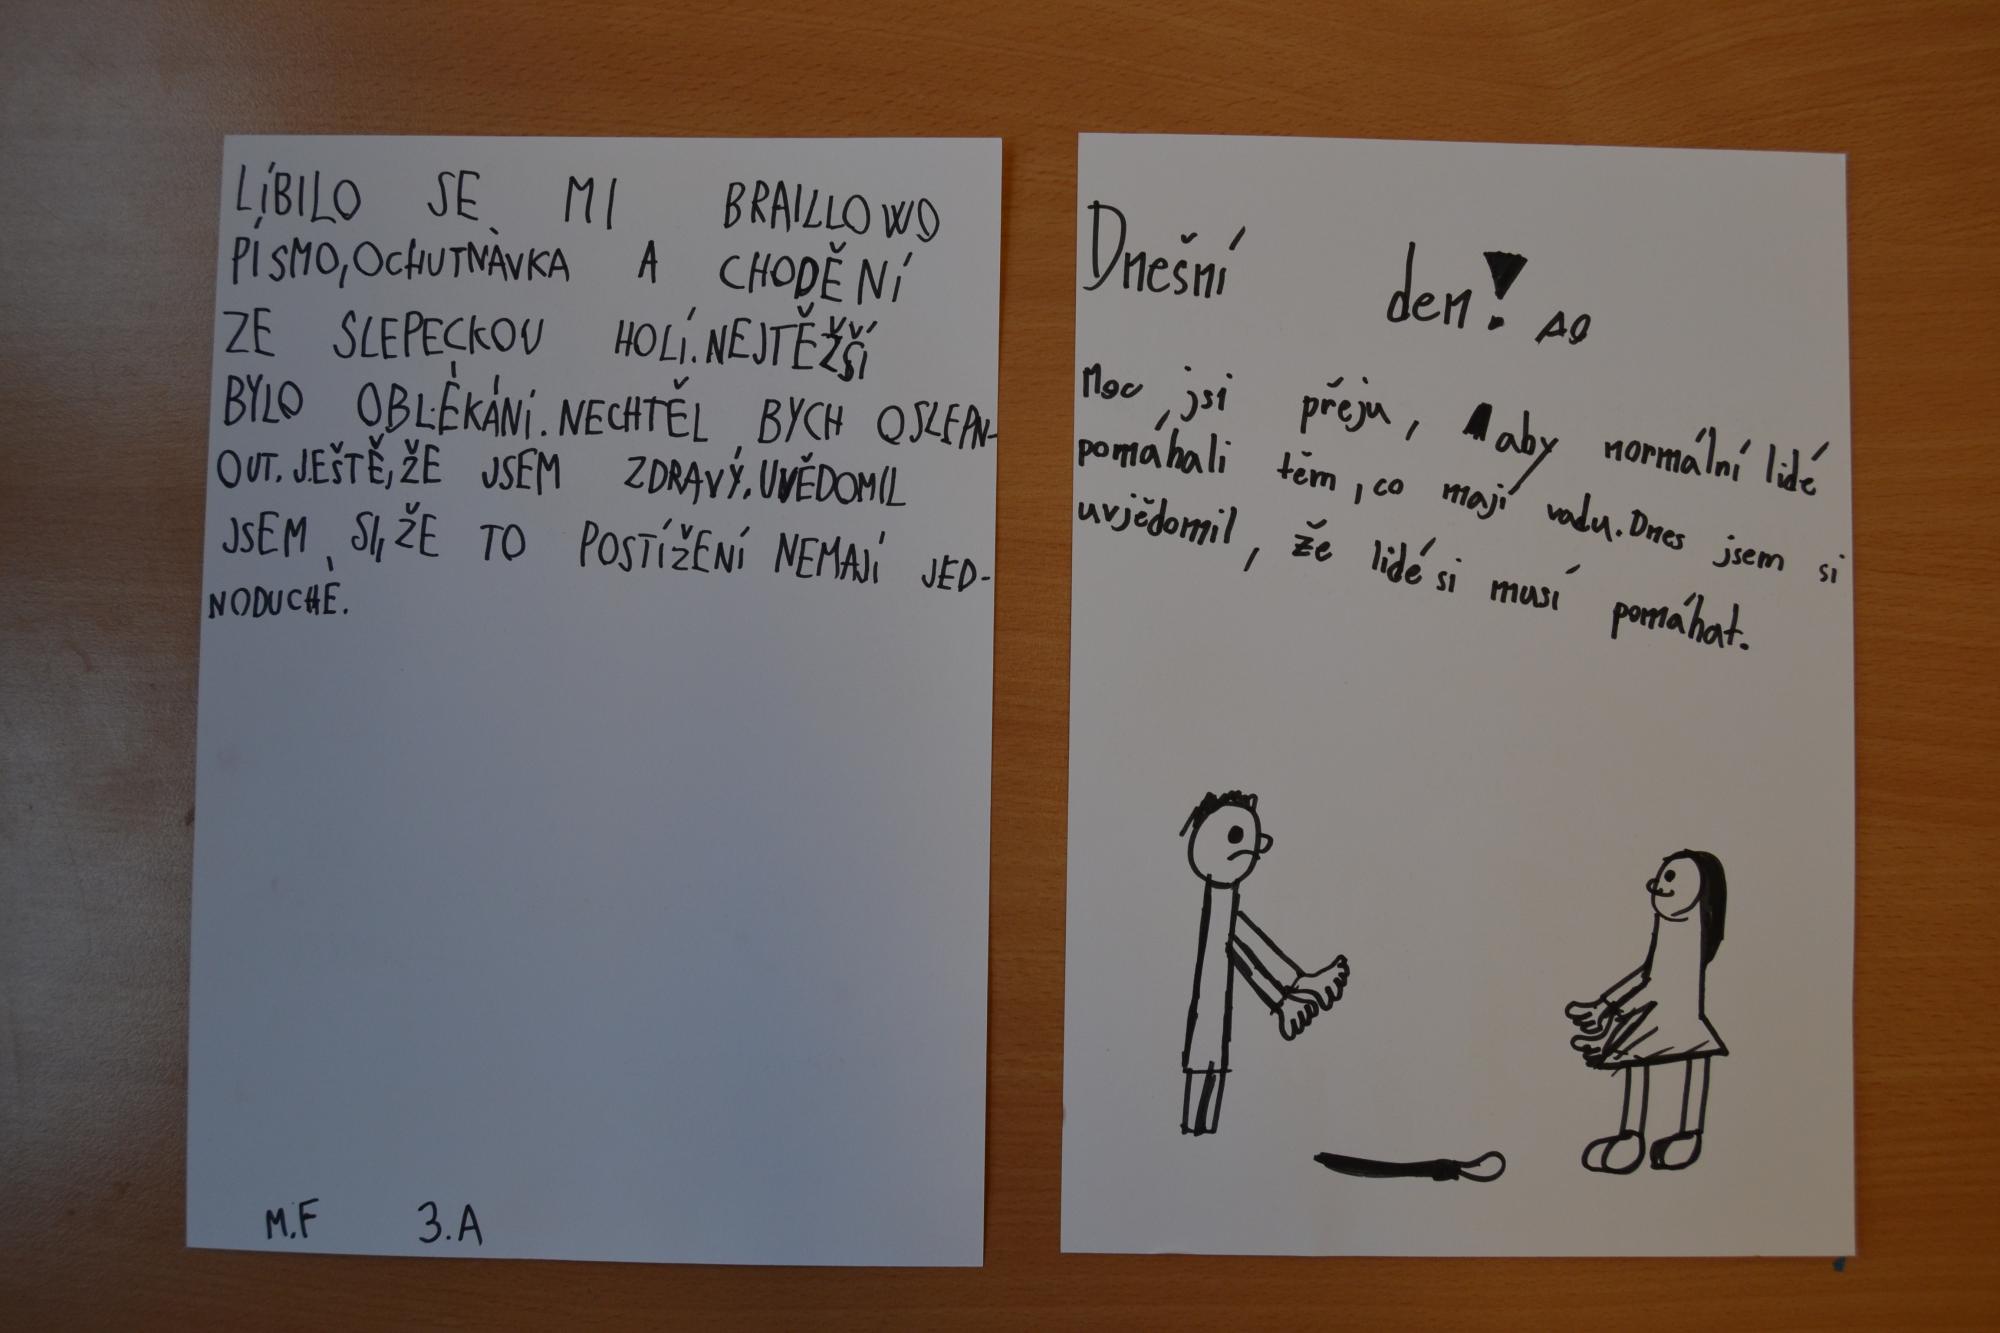 LÍBILO SE MI BRAILLOWO
PÍSMO, OCHUTNÀVKA A CHODĚNÍ
ZE SLEPECKOU HOLÍ. NEJTĚŽŠÍ
BYLO OBLÉKÁNÍ. NECHTĚL BYCH OSLEPN-
OUT. JEŠTĚ, ŽE JSEM ZDRAVÝ. UVĚDOMIL
JSEM SI, ŽE TO POSTÍŽENÍ NEMAJÍ JED-
NODUCHÉ.
M.F 3.A
Dnešní den! AO
Moc jsi přeju, aby normální lidé
pomáhali těm, co mají vadu. Dnes jsem si
uvjědomil, že lidé si musí pomáhat.